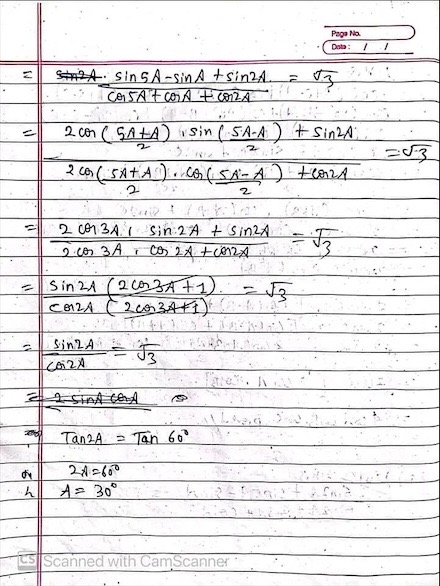 Page No.
Date: / /
= sin2A. sin5A-sinA + sin2A = √3
cos5A + cosA + cos2A
= 2 cos (5A+A) . sin (5A-A) + sin2A
2 2
= √3
2 cos (5A+A) . cos (5A-A) + cos2A
2 2
= 2 cos 3A . sin 2A + sin2A = √3
2 cos 3A . cos 2A + cos2A
= sin2A (2cos3A + 1) = √3
cos2A (2cos3A+1)
= sin2A = √3
cos2A
= 2 sinA cosA
Tan2A = Tan 60°
2A = 60°
A = 30°
CS Scanned with CamScanner